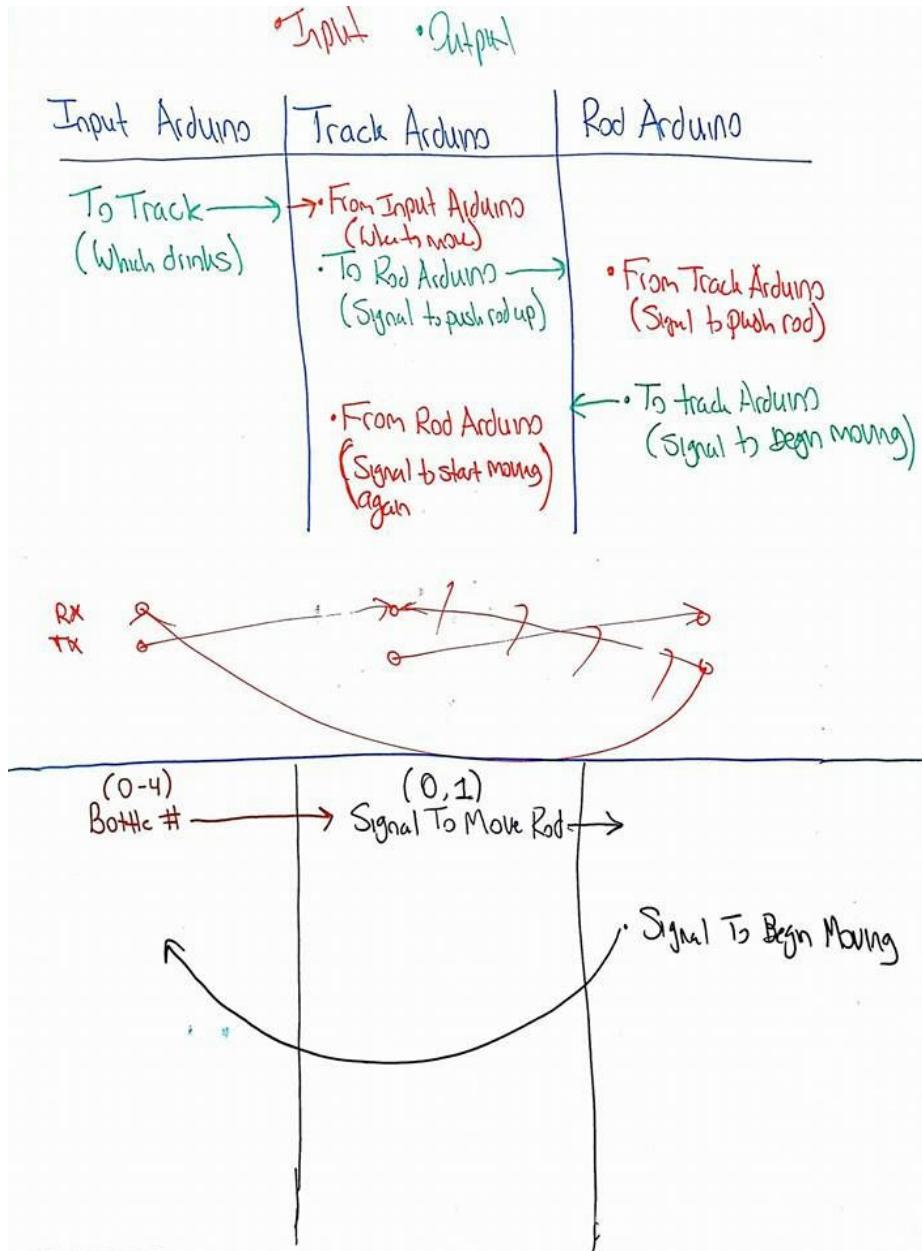 •Input •Output
Input Arduino Track Arduino Rod Arduino
To Track
(Which drinks)
•From Input Arduino
(Where to move)
•To Rod Arduino
(Signal to push rod up)
•From Rod Arduino
(Signal to start moving
again
•From Track Arduino
(Signal to push rod)
•To track Arduino
(Signal to Begin moving)
RX
TX
(0-4)
Bottle #
(0,1)
Signal To Move Rod
•Signal To Begin Moving